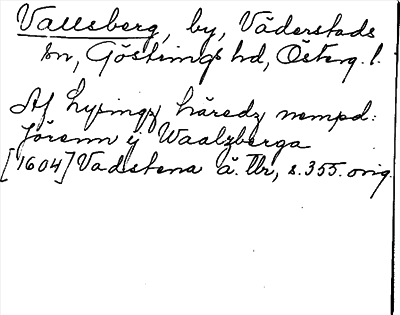 Vallsberg, by, Väderstads
sn, Göstrings hd, Österg. l.
Af Lysings häredz nempd:
Jörenn ij Waalzberga
[1604] Vadstena ä. Tbr, s. 355. orig.